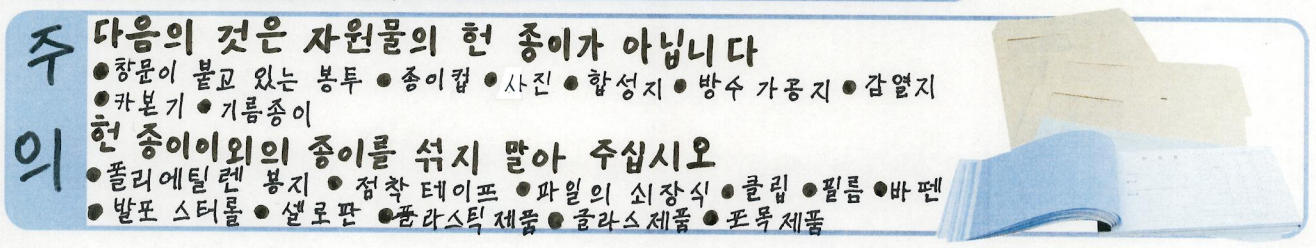 주의
다음의 것은 자원물의 헌 종이가 아닙니다
●창문이 붙고 있는 봉투 ●종이컵 ●사진 ●합성지 ●방수 가공지 ●감열지
●카본기 ●기름종이
헌 종이이외의 종이를 섞지 말아 주십시오
●폴리에틸렌 봉지 ●점착 테이프 ●파일의 쇠장식 ●클립 ●필름 ●바펜
●발포 스터롤 ●셀로판 ●플라스틱 제품 ●글라스제품 ●포목제품